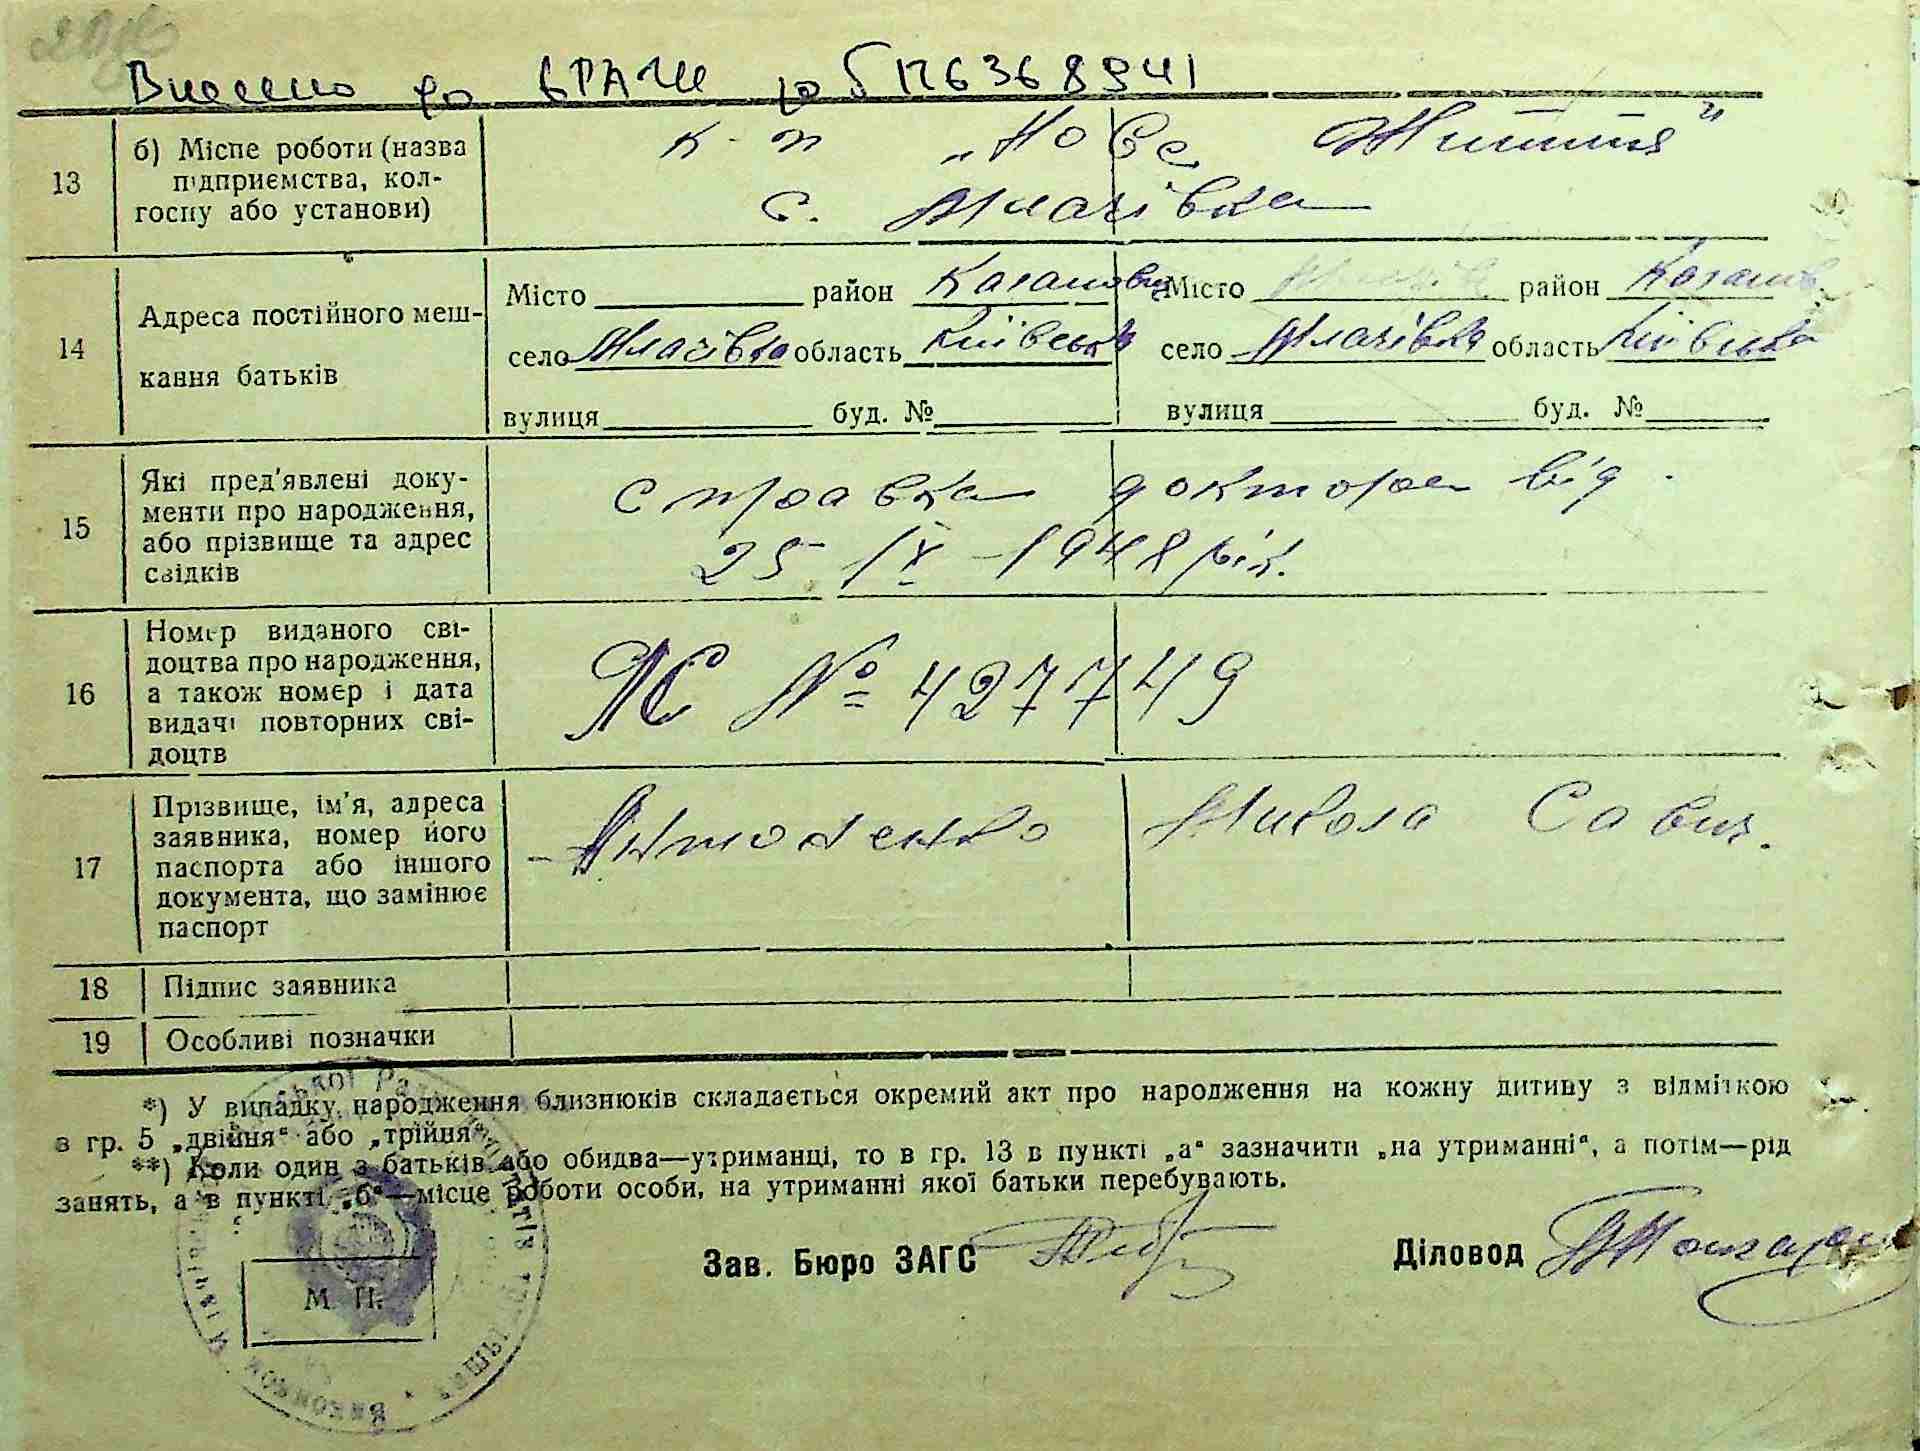 Внесено до ЄРАЦС 00176368941
13
б) Місце роботи (назва підприємства, колгоспу або установи)
к-п „Нове Життя"
с. Млачівка
14
Адреса постійного мешкання батьків
Місто район Каганович Місто район Каганов.
село Млачівка область Київська село Млачівка область Київська
вулиця буд. № вулиця буд. №
15
Які пред'явлені документи про народження, або прізвище та адрес свідків
справка доктора від
25 IX - 1948 рік.
16
Номер виданого свідоцтва про народження, а також номер і дата видачі повторних свідоцтв
ЯС № 427749
17
Прізвище, ім'я, адреса заявника, номер його паспорта або іншого документа, що замінює паспорт
Микола Савич.
18 Підпис заявника
19 Особливі позначки
*) У випадку народження близнюків складається окремий акт про народження на кожну дитину з відміткою
в гр. 5 „двійня" або „трійня"
**) Коли один з батьків або обидва—утриманці, то в гр. 13 в пункті „а" зазначити „на утриманні", а потім—рід
занять, а в пункті „б"—місце роботи особи, на утриманні якої батьки перебувають.
Зав. Бюро ЗАГС Діловод
М. П.